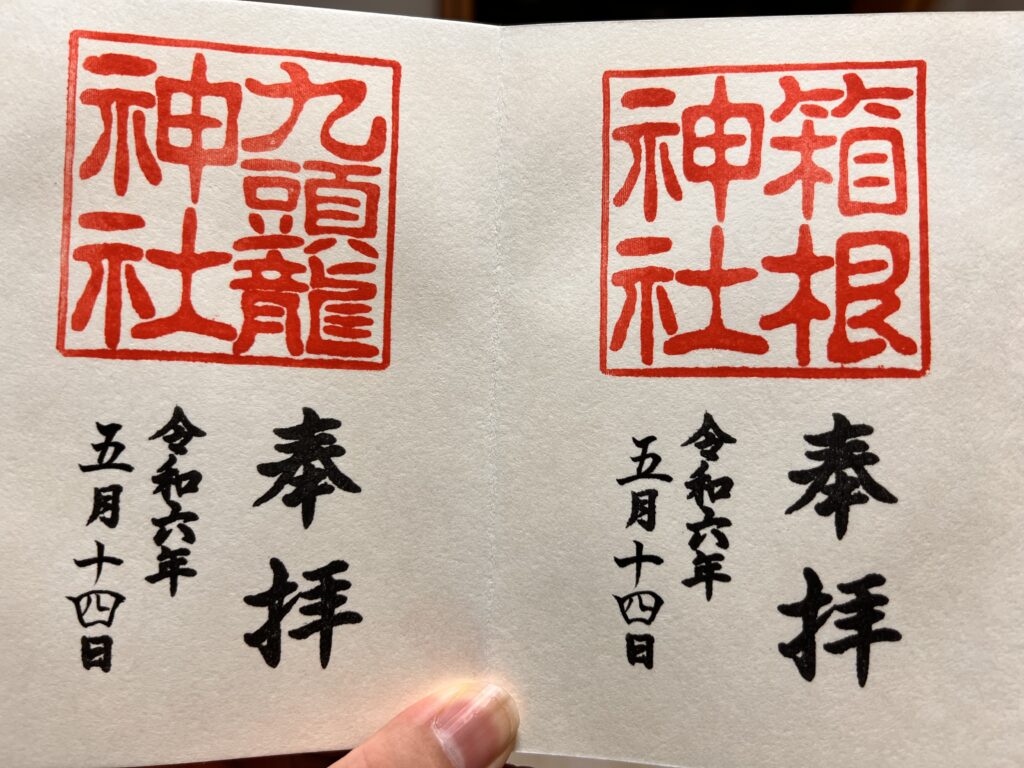 箱根
神社
奉拝
令和六年
五月十四日
九頭龍
神社
奉拝
令和六年
五月十四日